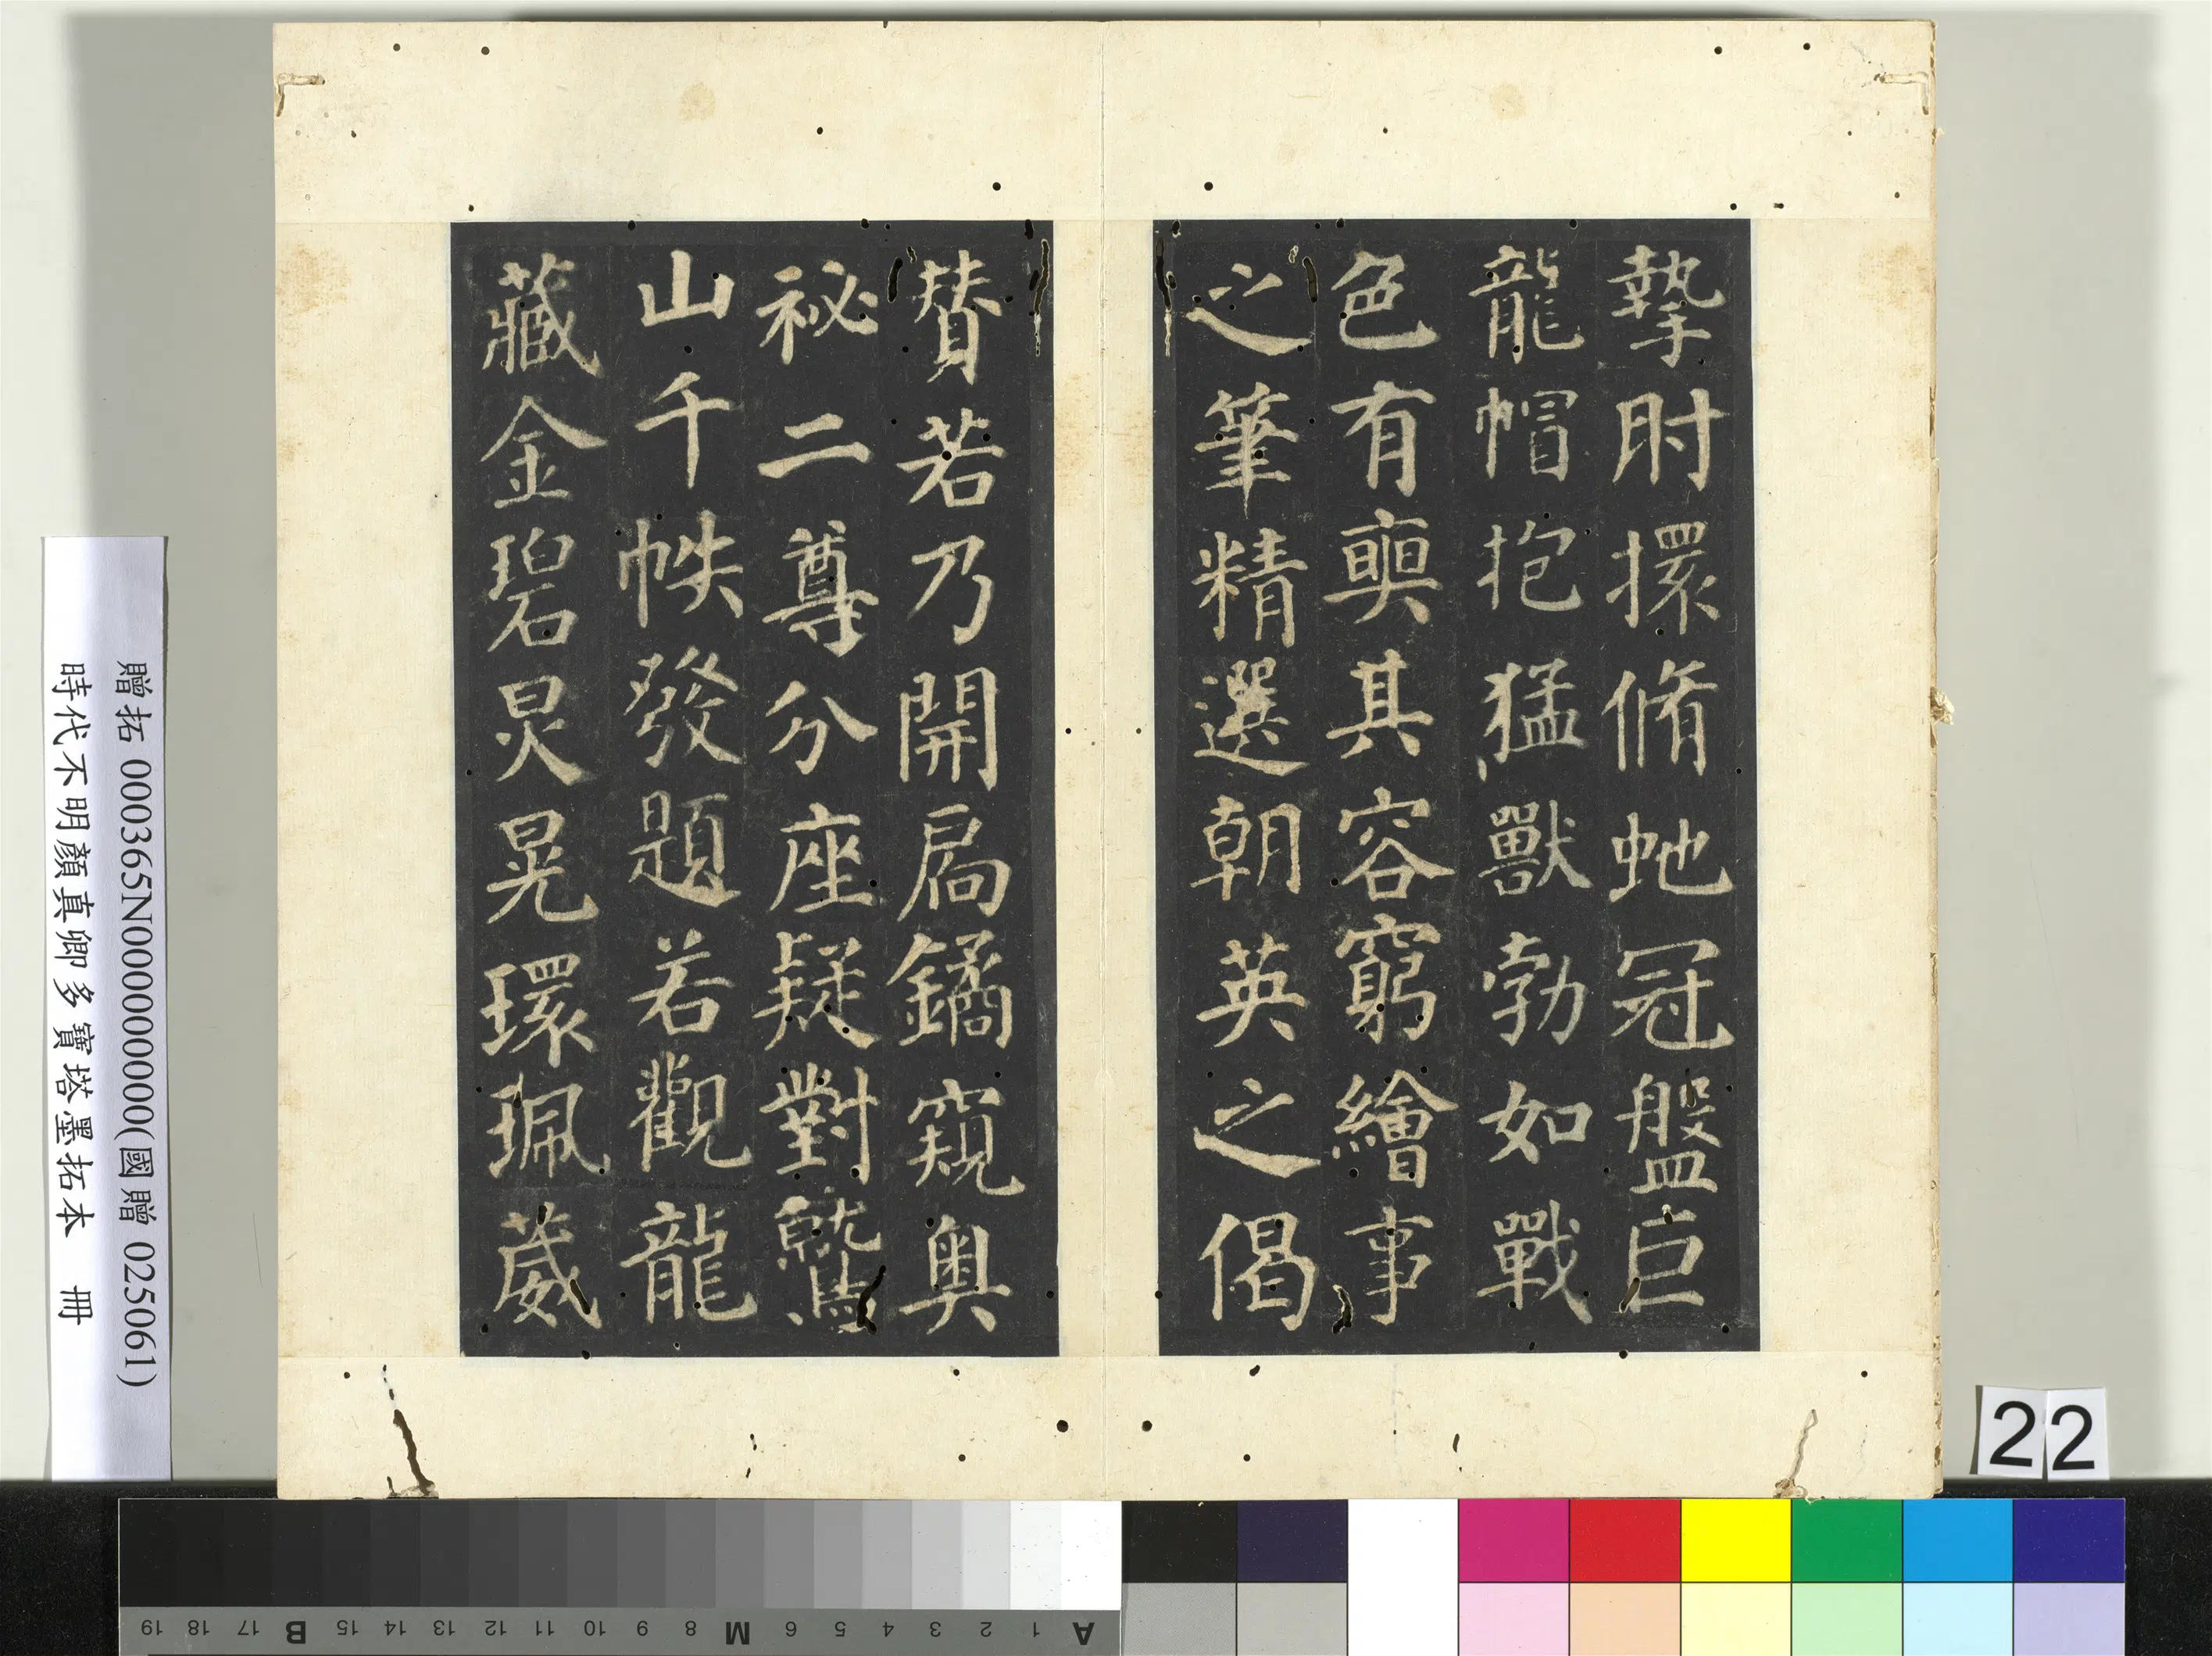 摯肘擐脩虵冠盤巨
龍帽抱猛獸勃如戰
色有奭其容窮繪事
之筆精選朝英之偈
賛若乃開扃鐍窺奧
祕二尊分座疑對鷲
山千帙發題若觀龍
藏金碧炅晃環珮葳
贈拓 000365N000000000(國贈 025061)
時代不明顏真卿多寶塔墨拓本 冊
22
A 1 2 3 4 5 6 M 8 9 10 11 12 13 14 15 B 17 18 19